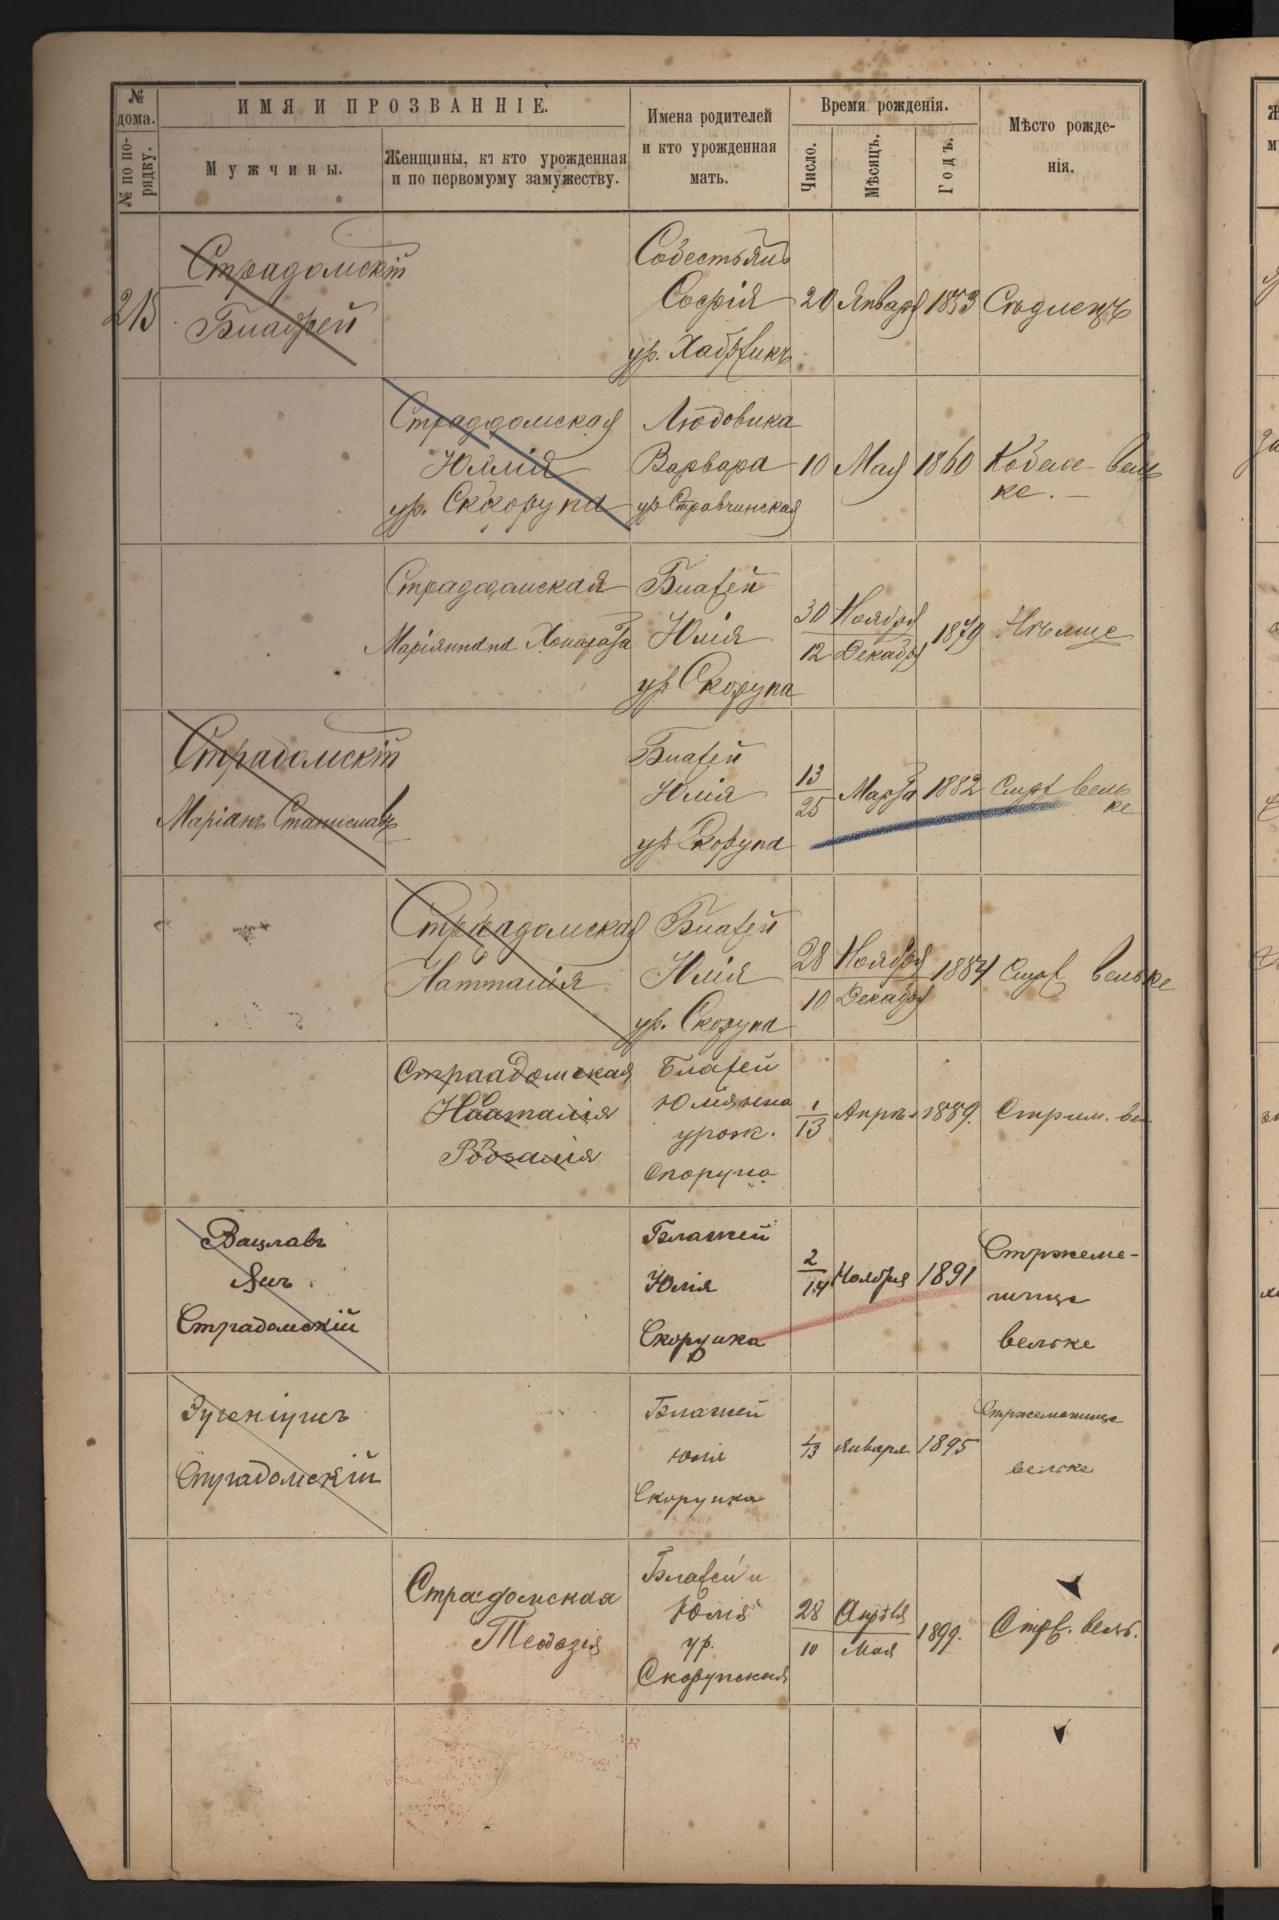 № дома.
ИМЯ И ПРОЗВАННІЕ.
Имена родителей и кто урожденная мать.
Время рожденія.
Мѣсто рожде-
нія.
№ по по-
рядку.
Мужчины.
Женщины, кз кто урожденная
и по первомуму замужеству.
Число.
Мѣсяцъ.
Годъ.
215
Страдомскій
Собестьянъ
Софія
20 Января 1853
ур.
Страдомская
Юлія
ур. Скорупа
Людовика
Варвара
10 Мая 1860
вель
ке.
Страдомская
Маріянна
Юлія
ур Скорупа
30 Ноября
12 Декабря
1879
Страдомскій
Маріанъ Станиславъ
Юлія
ур Скорупа
13
25
Марта 1882
вель
ке
Страдомская
Наталія
Юлія
ур. Скорупа
28 Ноября
10 Декабря
1884
вельке
Страдомская
Наталія
Розалія
Блажей
Юліянна
урож.
1
13
1889.
Стрим.
Вацлавъ
Янъ
Страдомскій
Блажей
Юлія
Скорупка
2
14
Ноября 1891
Стржеме-
шице
вельке
Эугеніушъ
Страдомскій
Блажей
Юлія
Скорупка
1/13 Января 1895
Стржемешице
вельке
Страдомская
Теодозія
Блажей и
Юлія
ур.
Скорупская
28 Апрѣля
10 Мая
1899.
вель.